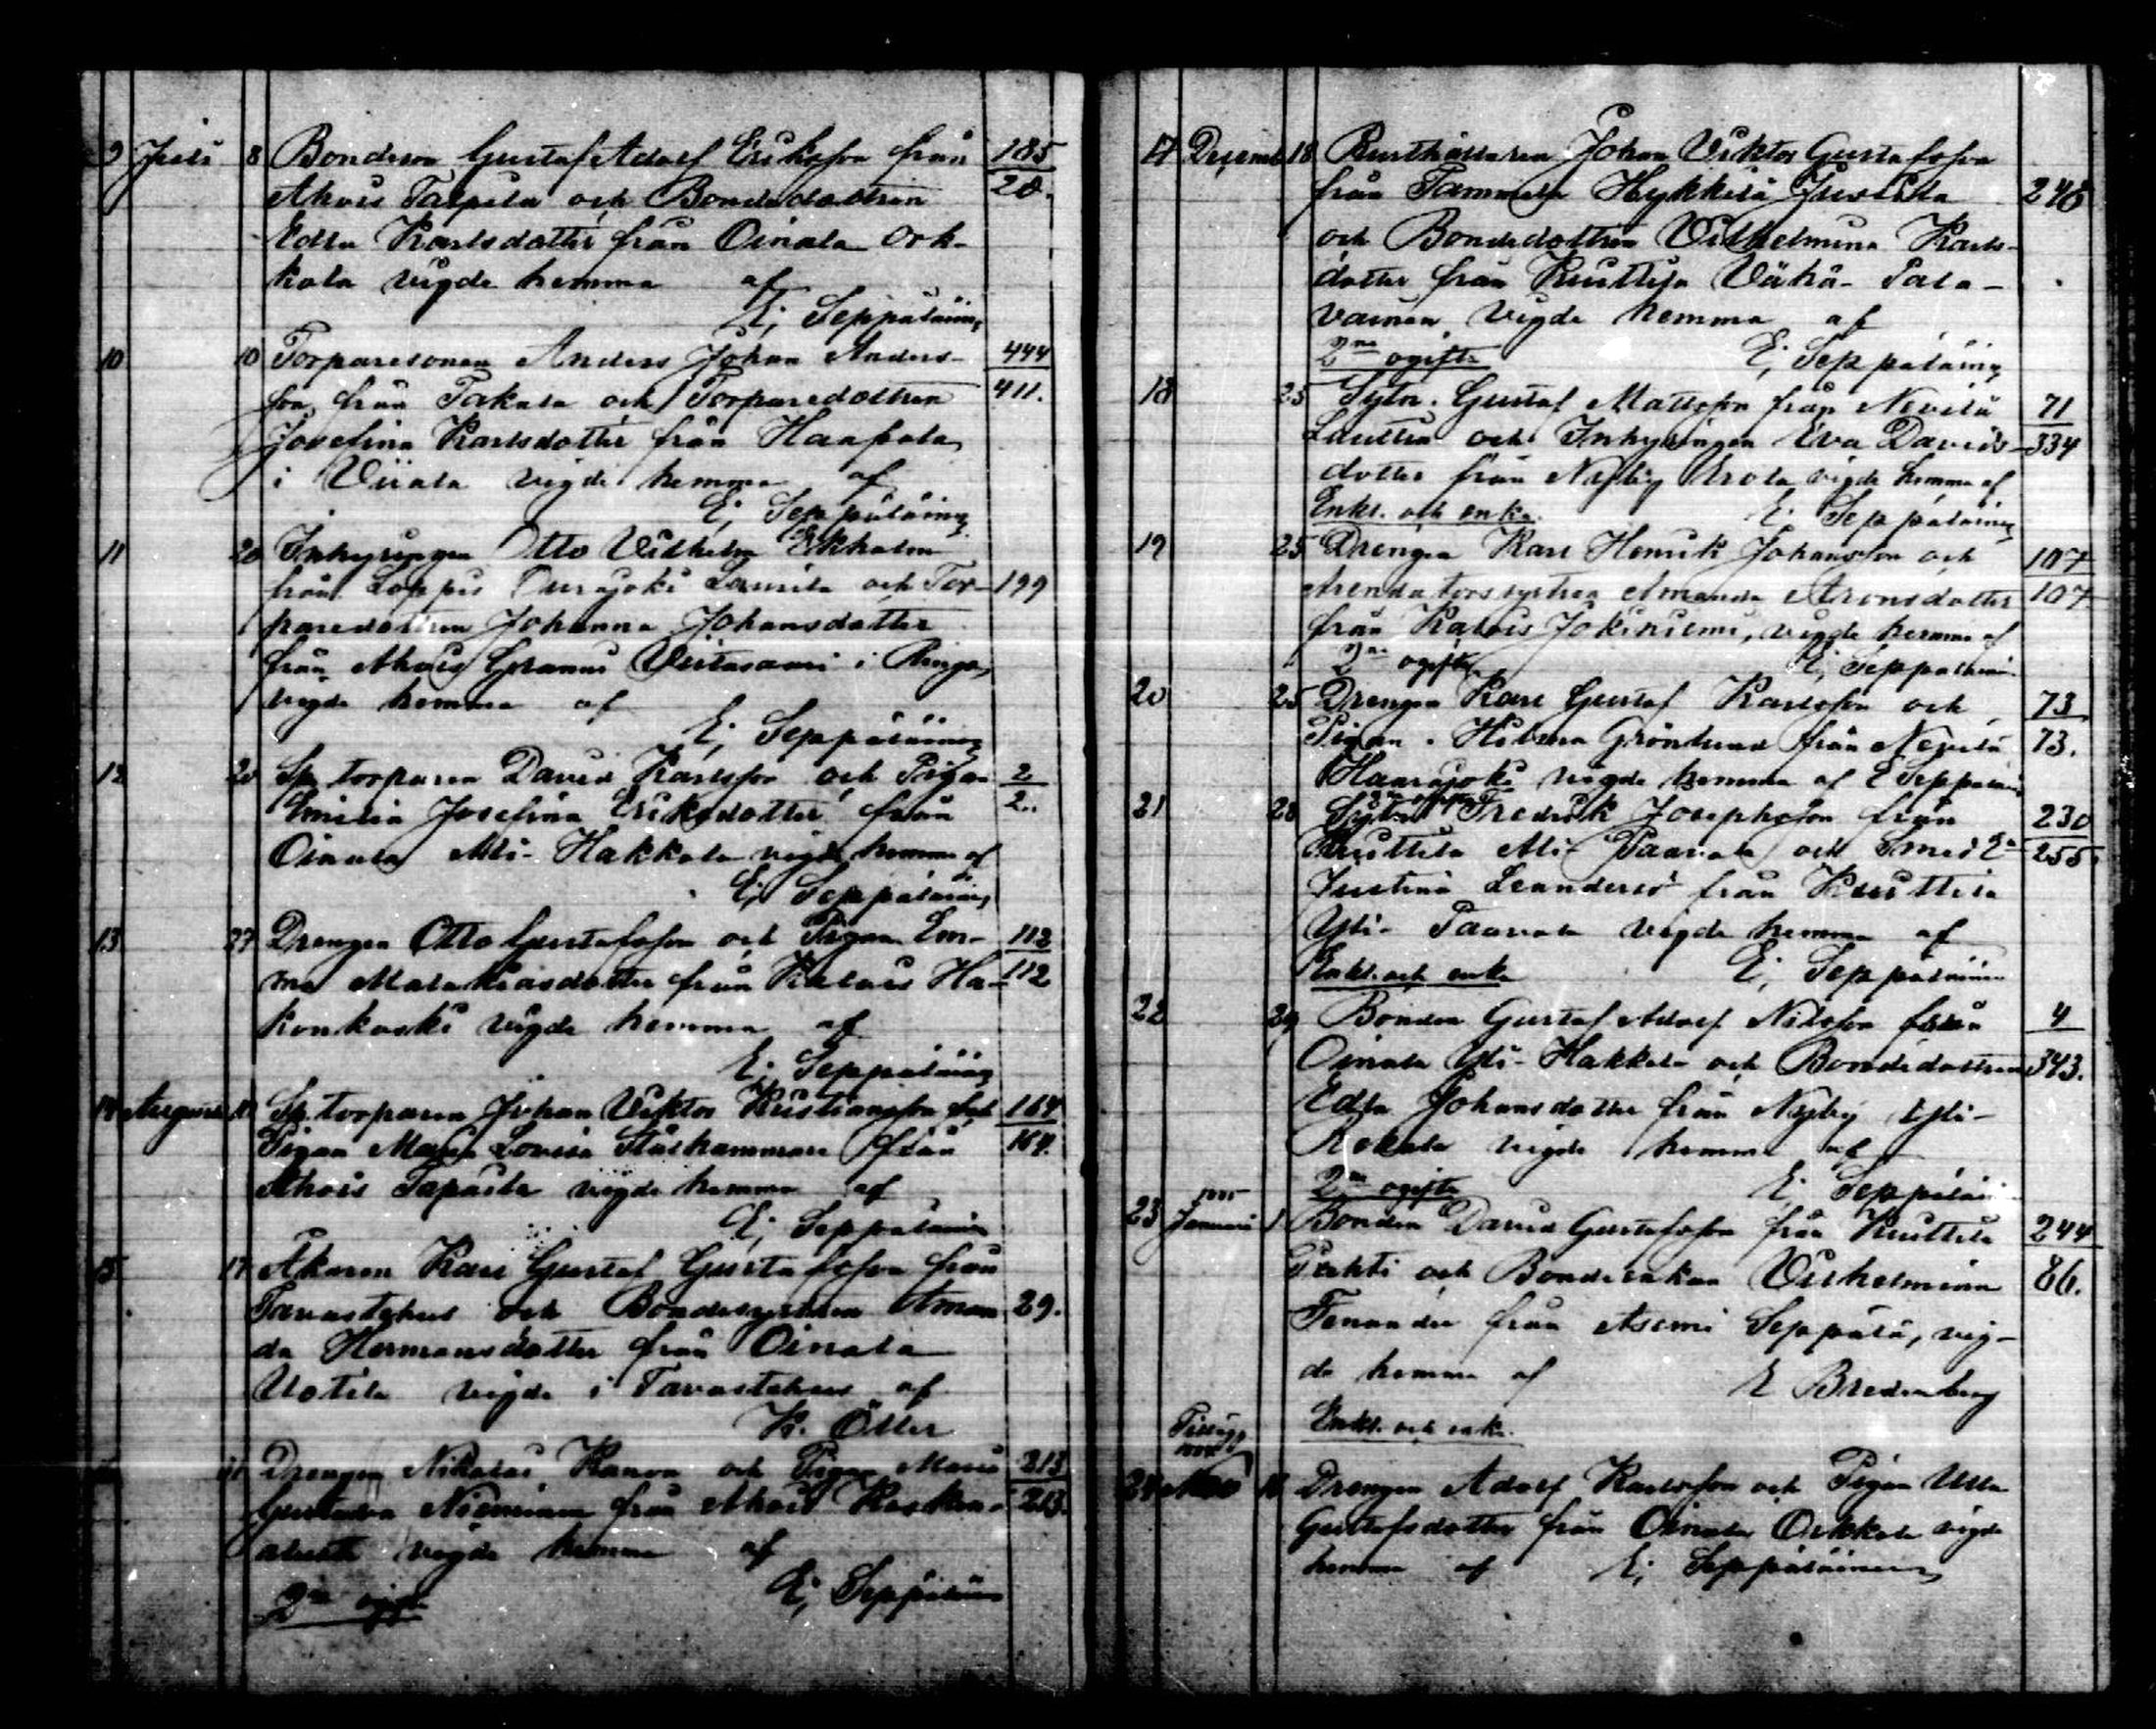 9 Juli 8 Bondeson Gustaf Adolf Eriksson från 185
Ahois Talpila och Bondedottren 20.
Edla Karlsdotter från Oinala Ork-
kola vigde hemma af
E; Seppäläinen
10 10 Torparesonen Anders Johan Anders- 444
son från Takala och Torparedottren 411.
Josefina Karlsdotter från Haapala
i Viiala vigde hemma af
E; Seppäläinen
11 20 Inhysingen Otto Vilhelm Ekholm
från Loppis Launila och Tor- 199
paredottren Johanna Johansdotter
från Ahois i Ringa,
vigde hemma af
E; Seppäläinen
12 20 Sp. torparen David Karlsson och Pigan 2
Emilia Josefina Eriksdotter från 2.
Oinala Ali-Hakkala vigde hemma af
E; Seppäläinen
13 27 Drengen Otto Gustafsson och Pigan Em- 112
ma Malakiasdotter från Kalois Ha- 112
konkoski vigde hemma af
E; Seppäläinen
14 Augusti Sp. torparen Johan Viktor Kristiansson och 164
Pigan Maria Lovisa Stålhammare från 164.
Ahois vigde hemma af
E; Seppäläinen
15 17 Åkaren Karl Gustaf Gustafsson från
Tavastehus och Bondesystren Aman 29.
da Hermansdotter från Oinala
Uotila vigde i Tavastehus af
K. Öller
Drengen Nikolai Kanon och Pigan Maria 213
Gustava Nieminen från Ahois 213.
vigde hemma af
2ne ogifte E; Seppäläinen
17 Decemb 18 Rusthållaren Johan Viktor Gustafsson
från Tammela Hykkilä Jussila 248
och Bondedottren Vilhelmina Karls-
dotter från Kuuttila Vähä-Pala-
vainen vigde hemma af
2ne ogifte E; Seppäläinen
18 25 Sytn. Gustaf Mattsson från Nevilä 71
Lauttia och Inhysingen Eva Davids- 334
dotter från Nyby vigde hemma af
Enkl. och enka. E; Seppäläinen
19 25 Drengen Karl Henrik Johansson och 107
Arendatorssystren Amanda Aronsdotter 107
från Kalois Jokiniemi, vigde hemma af
2ne ogifte E; Seppäläinen
20 25 Drengen Karl Gustaf Karlsson och 73
Pigan Hilma Grönlund från Nevilä 73.
Haarajoki vigde hemma af E Seppäläinen
21 28 Sytn. Fredrik Josephsson från 230
Kuuttila Ali-Paavola och Smed E 255.
Justina Leander från Kuuttila
Yli-Paavola vigde hemma af
Enkl. och enka E; Seppäläinen
22 29 Bonden Gustaf Adolf Nilsson från 4
Oinala Yli-Hakkala och Bondedottren 343.
Edla Johansdotter från Nyby Yli-
Rokala vigde hemma af
2ne ogifte E; Seppäläinen
23 Januari 1 Bonden David Gustafsson från Kuuttila 244
Pehti och Bondeenkan Vilhelmina 86.
Fenander från Asemi Seppälä, vig-
de hemma af E Bredenberg
Enkl. och enka.
Tillägg
24 Drengen Adolf Karlsson och Pigan Ulla
Gustafsdotter från Oinala Orkkola vigde
hemma af E; Seppäläinen